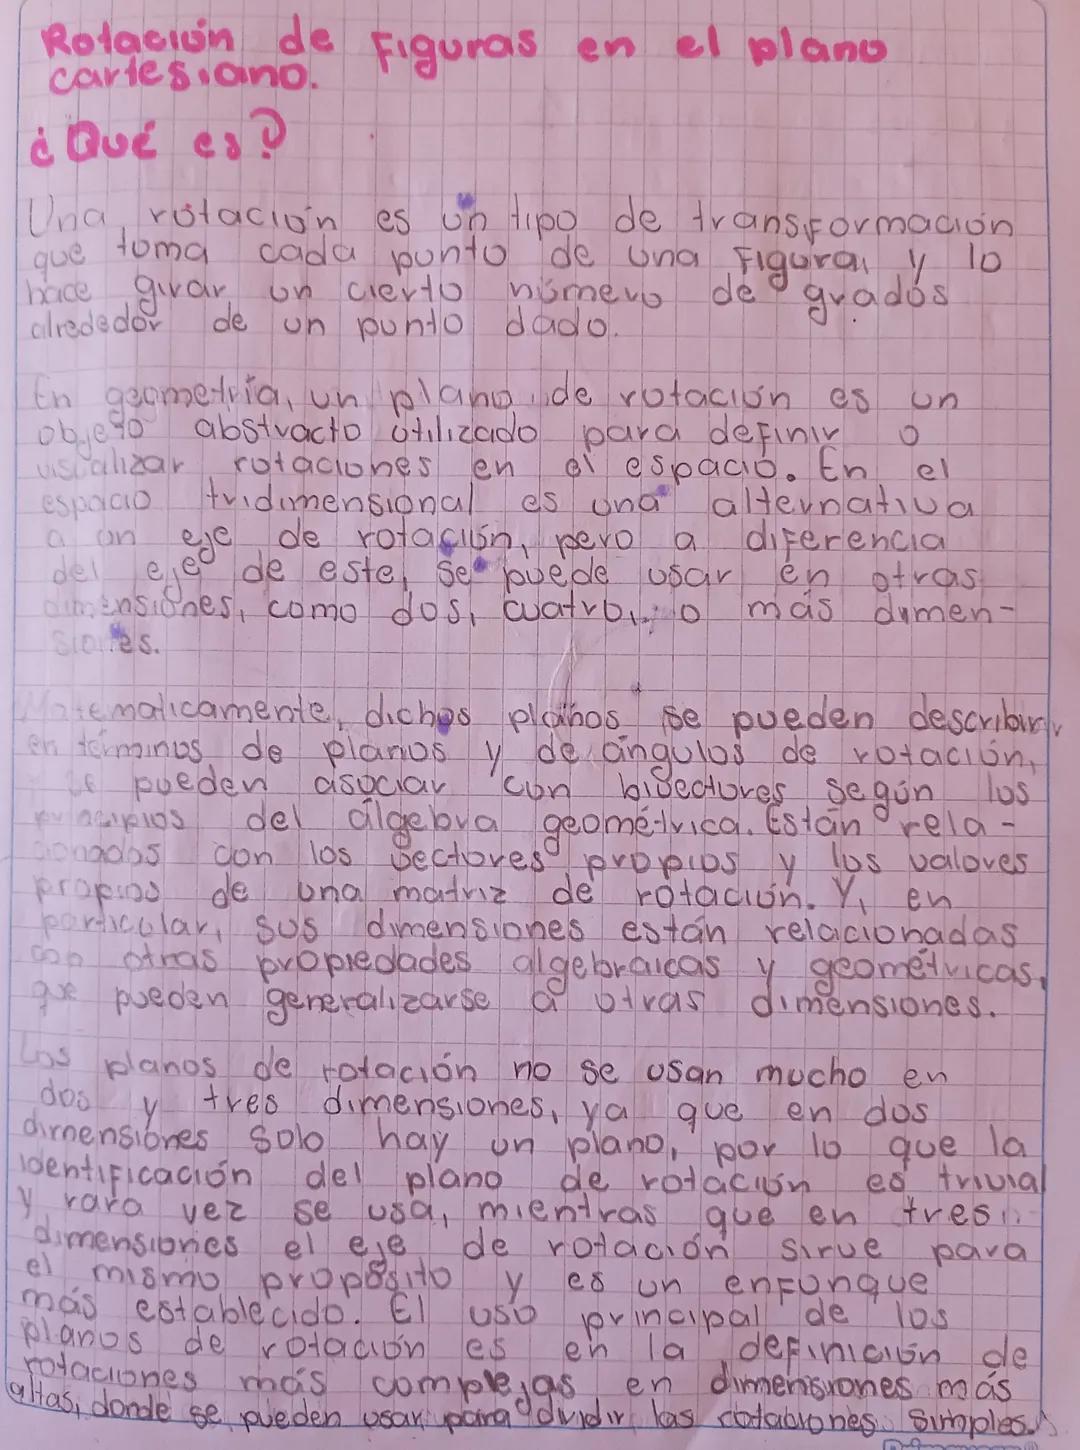 Rotación de Figuras en el plano
cartesiano.
¿Qué es?
Una rotación es un tipo de transformación
que toma cada punto de una Figura y lo
hace girar un cierto número de grados
alrededor de un punto dado.
En geometría, un plano de rotación es un
objeto abstracto utilizado para definir o
visualizar rotaciones en el espacio. En el
espacio tridimensional es una alternativa
a un eje de rotación, pero a diferencia
del eje de este, se puede usar en otras
dimensiones, como dos, cuatro, o más dimen-
siones.
Matematicamente, dichos planos se pueden describir
en términos de planos y de ángulos de rotación,
se pueden asociar con bivectores según los
principios del álgebra geométrica. Están rela-
cionados con los vectores propios y los valores
propios de una matriz de rotación. Y, en
particular, sus dimensiones están relacionadas
con otras propiedades algebraicas y geométricas,
que pueden generalizarse a otras dimensiones.
Los planos de rotación no se usan mucho en
dos y tres dimensiones, ya que en dos
dimensiones solo hay un plano, por lo que la
identificación del plano de rotación es trivial
y rara vez se usa, mientras que en tres
dimensiones el eje de rotación sirve para
el mismo propósito y es un enfonque
más establecido. El uso principal de los
planos de rotación es en la definición de
rotaciones más complejas en dimensiones más
altas, donde se pueden usar para dividir las rotaciones simples.